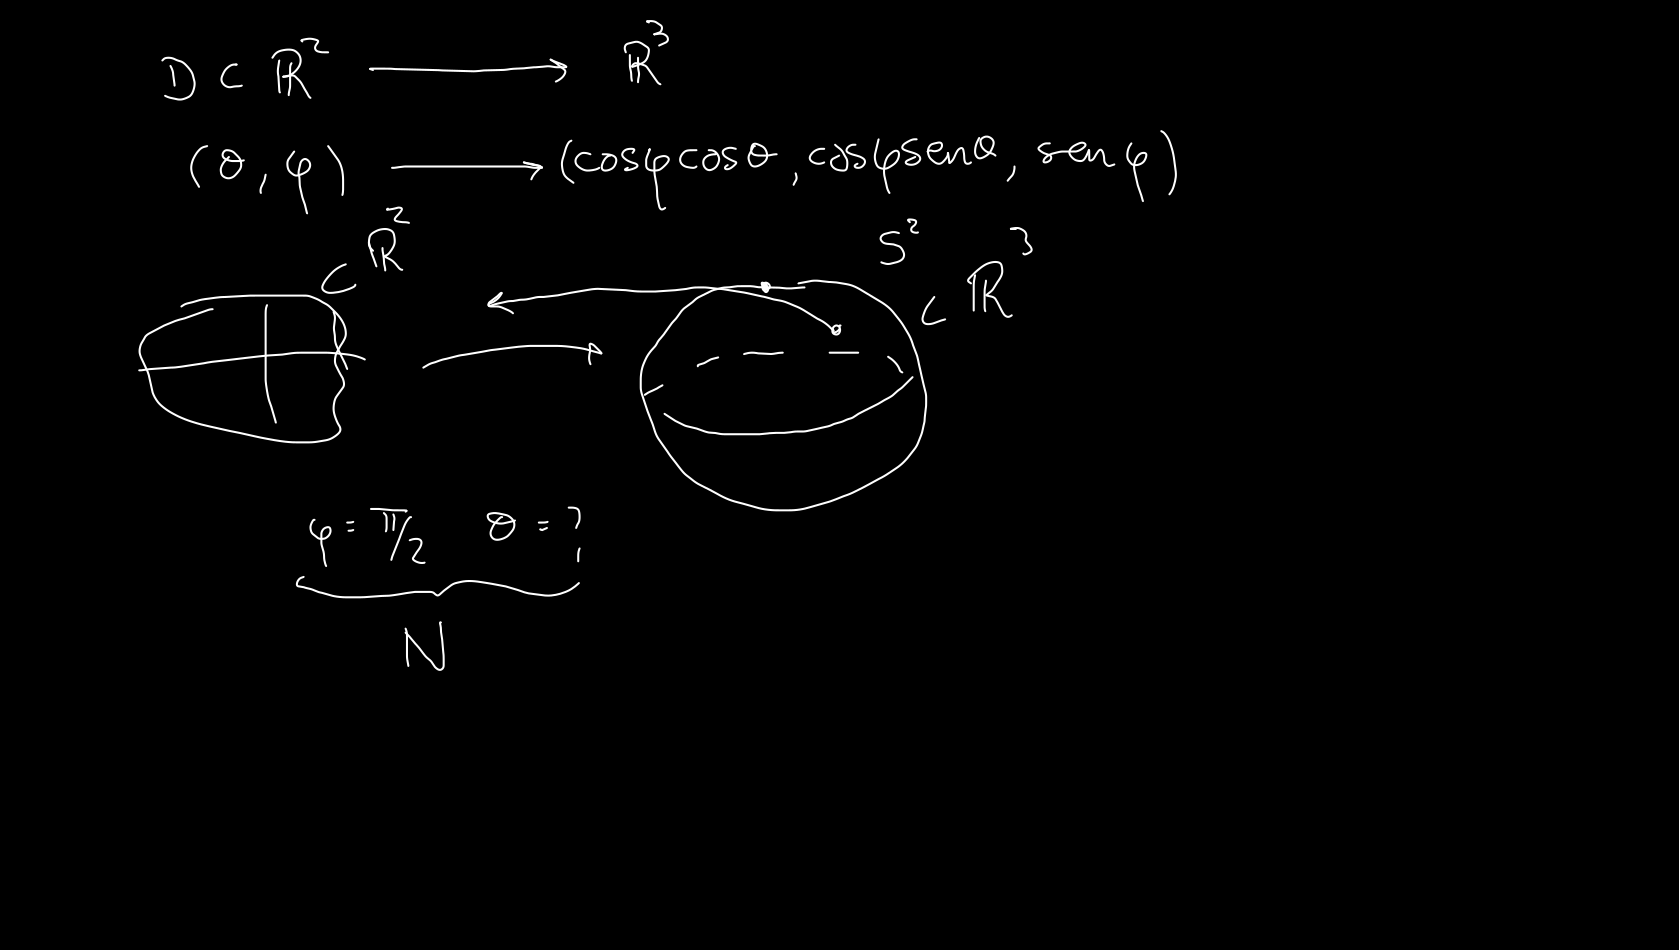 D ⊂ ℝ² ⟶ ℝ³
(θ, φ) ⟶ (cosφ cosθ, cosφ senθ, sen φ)
⊂ ℝ²
S² ⊂ ℝ³
φ = π/2 θ = ?
N